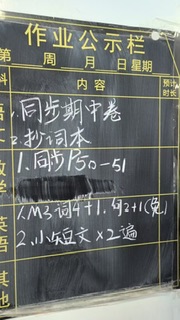 作业公示栏
第 周 月 日 星期
科 内容 预计时长
语文
1.同步期中卷
2.抄词本
数学
1.同步P50-51
英语
1.M3 词4+1.句2+1(免)
2.小短文×2遍
其他